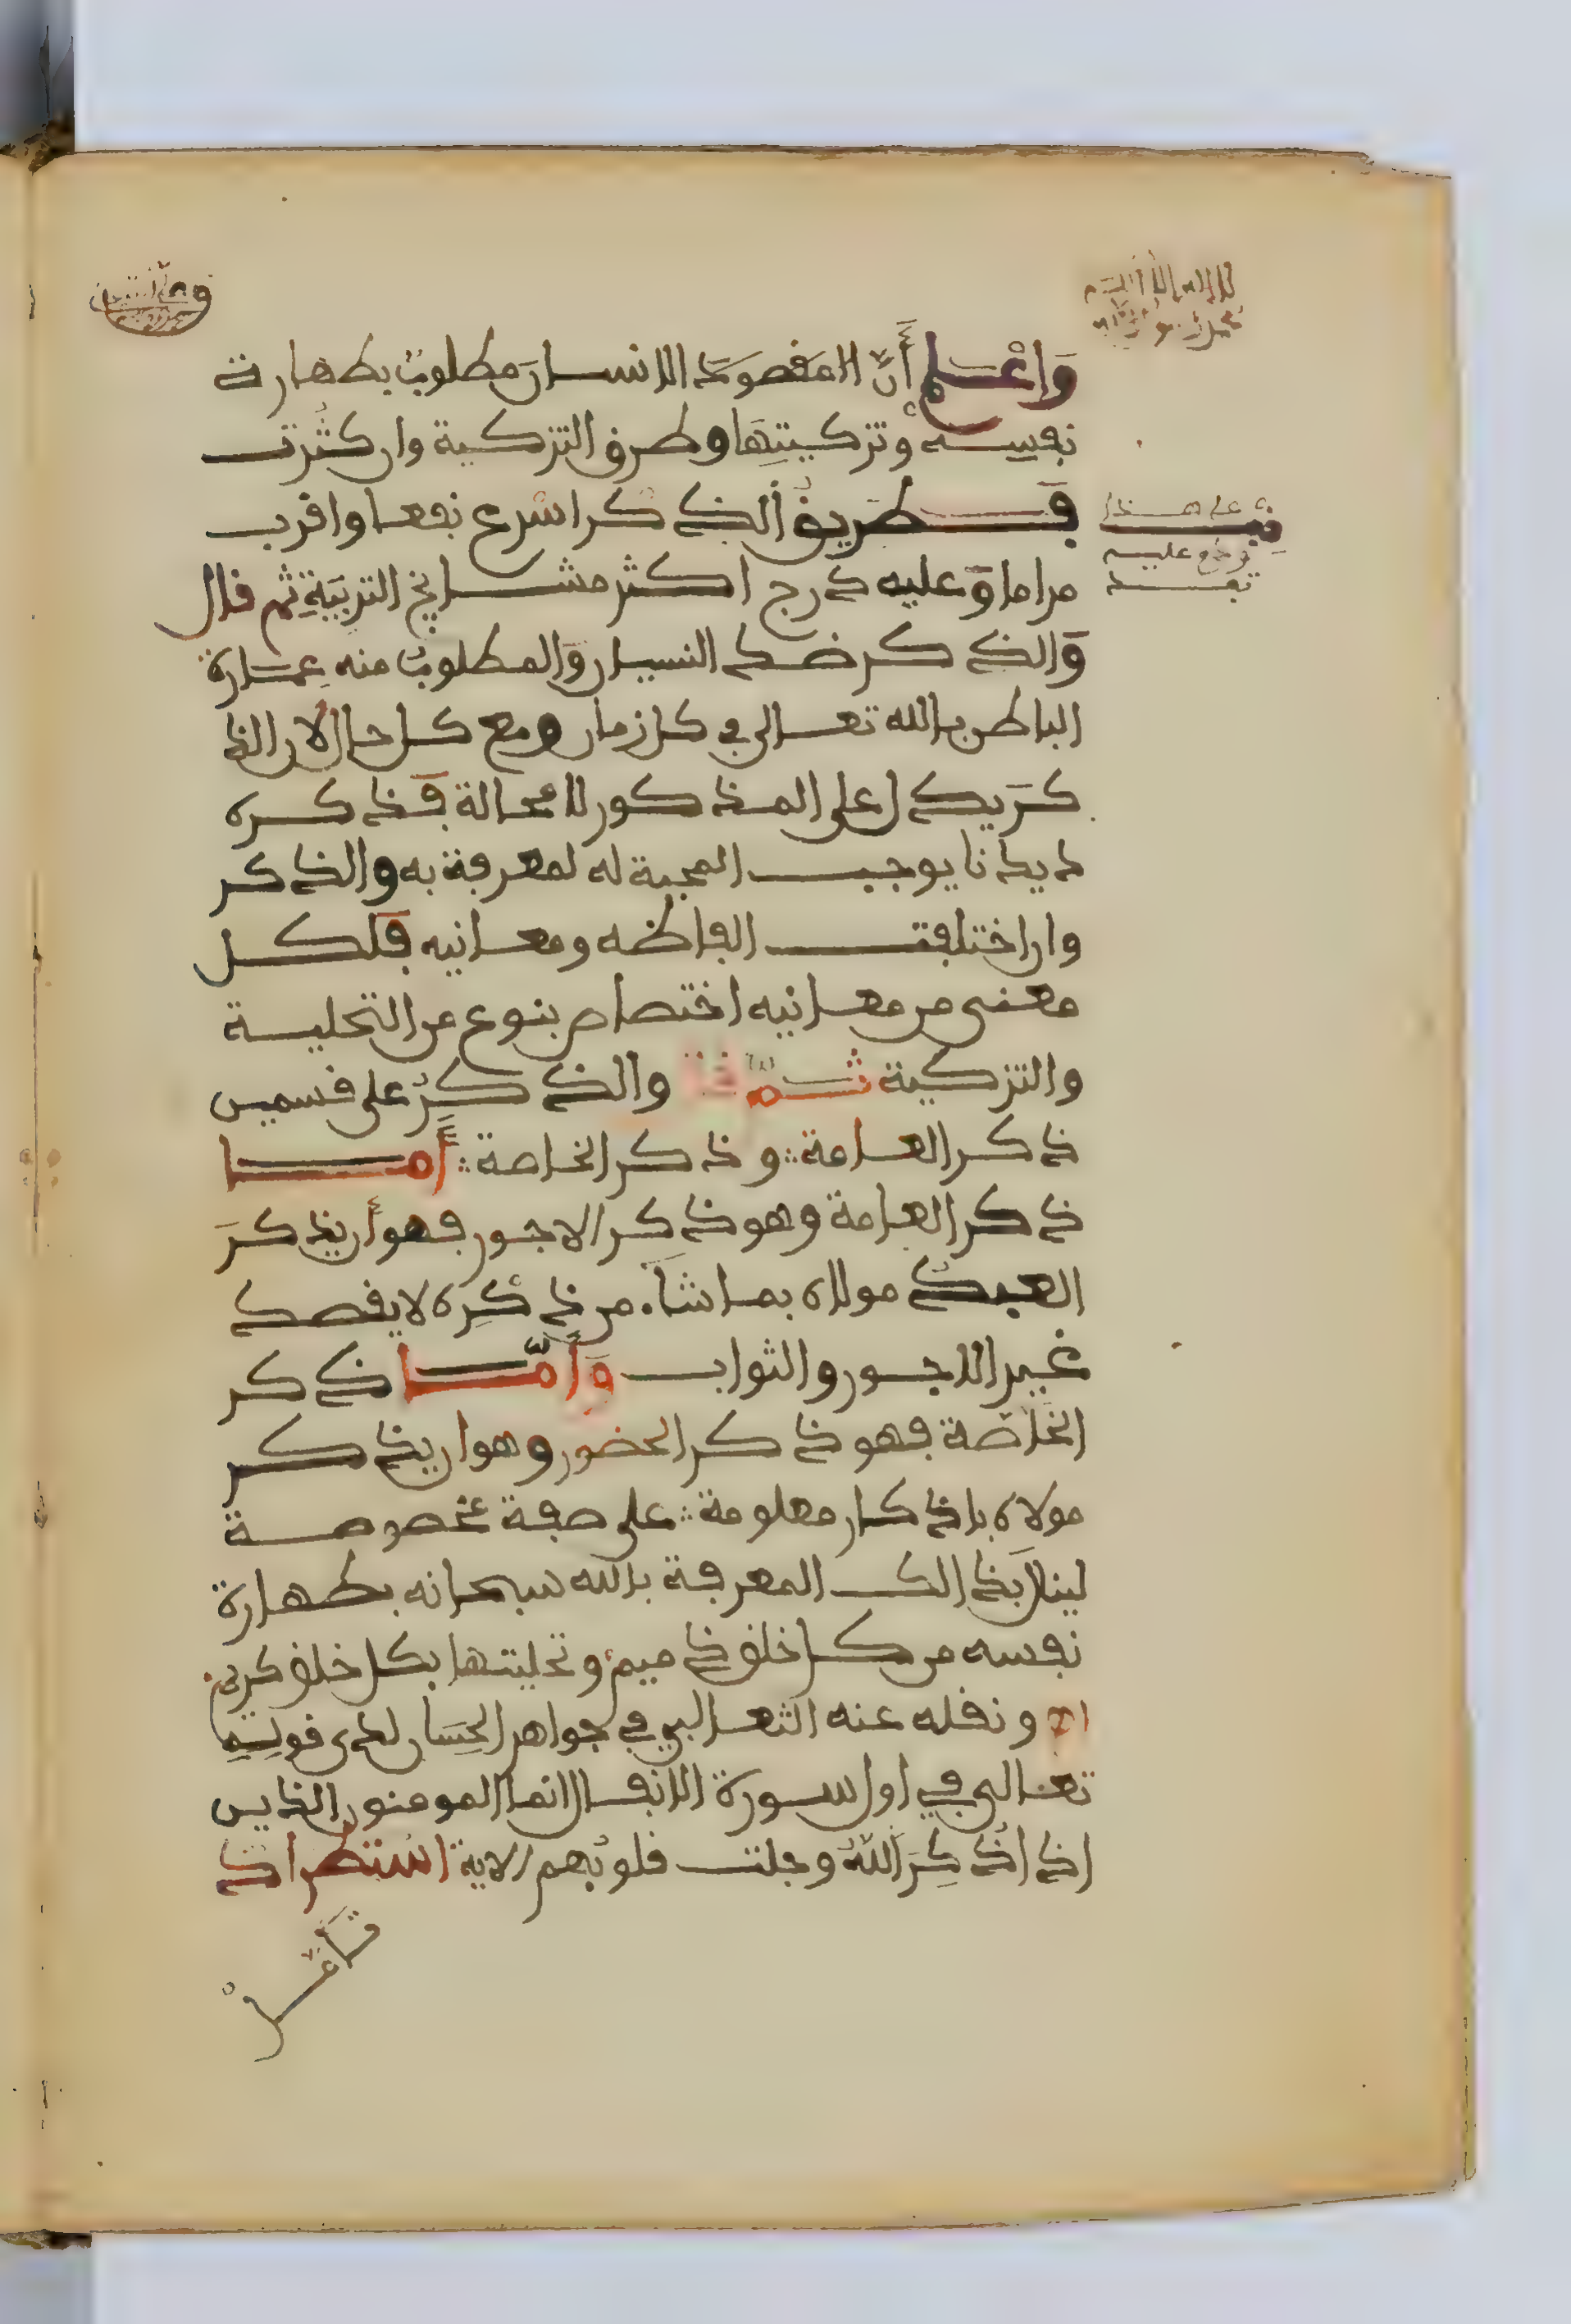 لا اله الا الله
محمد رسول الله
وَاعْلم أنّ المقصود الانسان مطلوب بطهارة
نفسه وتزكيتها وطرق التزكية وان كثرت
فطريق الذكر اسرع نفعا واقرب
مراما وعليه درج اكثر مشايخ التربية ثم قال
والذكر ضد النسيان والمطلوب منه عمارة
الباطن بالله تعالى في كل زمان ومع كل حال لان الذ
كر يدل على المذكور لا محالة فذكره
ديدنا يوجب المحبة له لمعرفة به والذكر
وان اختلفت الفاظه ومعانيه فلكل
معنى من معانيه اختصاص بنوع من التحلية
والتزكية ثمّ قال والذكر على قسمين
ذكر العامة وذكر الخاصة أما
ذكر العامة وهو ذكر الاجور فهو أن يذكر
العبد مولاه بما شاء من ذكره لا يقصد
غير الاجور والثواب وأمّا ذكر
الخاصة فهو ذكر الحضور وهو ان يذكر
مولاه باذكار معلومة على صفة مخصوصة
لينال بذالك المعرفة بالله سبحانه بطهارة
نفسه من كل خلق ذميم وتحليتها بكل خلق كريم
اه ونقله عنه الثعالبي في جواهر الحسان لدى قوله
تعالى في اول سورة الانفال انما المومنون الذين
اذا ذكر الله وجلت قلوبهم الاية استطراد
على هذا
توضع عليه